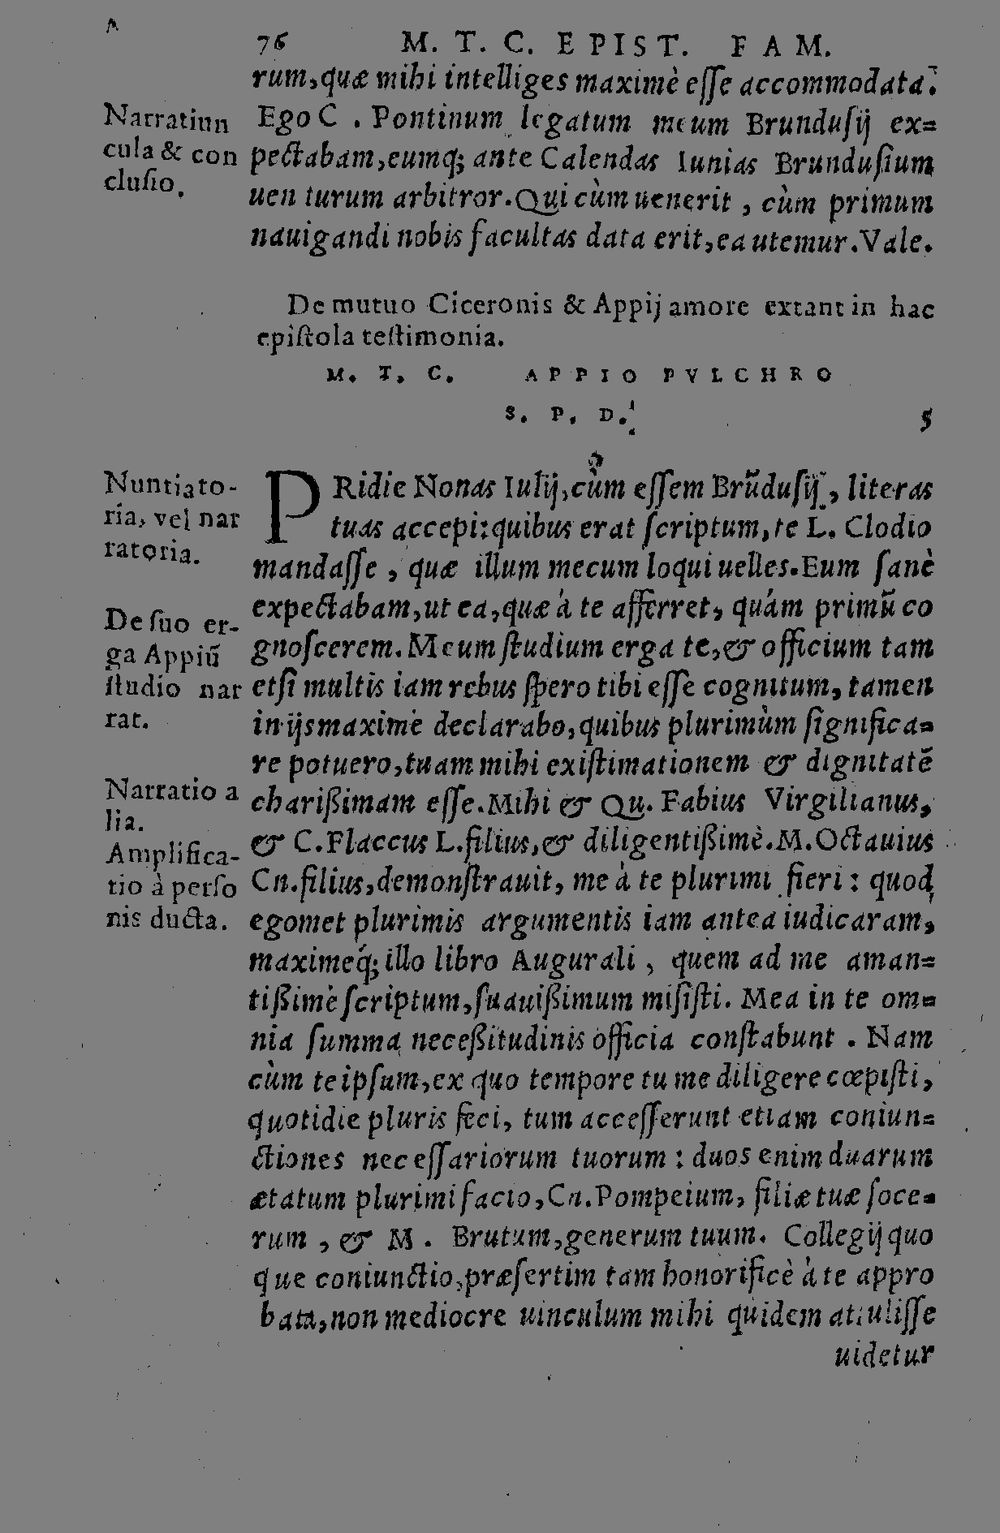 76 M. T. C. EPIST. FAM.
rum,quæ mihi intelliges maximè eſſe accommodata.
Narratiun
cula & con
cluſio.
Ego C . Pontinum legatum meum Brunduſij ex=
pectabam,eumq; ante Calendas Iunias Brunduſium
uen turum arbitror.Qui cùm uenerit , cùm primum
nauigandi nobis facultas data erit,ea utemur.Vale.
De mutuo Ciceronis & Appij amore extant in hac
epiſtola teſtimonia.
M. T. C. APPIO PVLCHRO
S. P. D. 5
Nuntiato-
ria, vel nar
ratoria.
PRidie Nonas Iulij,cùm eſſem Brũduſij , literas
tuas accepi:quibus erat ſcriptum,te L. Clodio
mandaſſe , quæ illum mecum loqui uelles.Eum ſanè
De ſuo er-
ga Appiũ
ſtudio nar
rat.
expectabam,ut ea,quæ à te afferret, quám primũ co
gnoſcerem.Meum ſtudium erga te,& officium tam
etſi multis iam rebus ſpero tibi eſſe cognitum, tamen
in ijs maximè declarabo,quibus plurimùm ſignifica=
re potuero,tuam mihi exiſtimationem & dignitatẽ
Narratio a
lia.
Amplifica-
tio à perſo
nis ducta.
chariſsimam eſſe.Mihi & Qu. Fabius Virgilianus,
& C.Flaccus L.filius,& diligentiſsimè.M.Octauius
Cn.filius,demonſtrauit, me à te plurimi fieri : quod
egomet plurimis argumentis iam antea iudicaram,
maximeq́; illo libro Augurali , quem ad me aman=
tiſsimè ſcriptum,ſuauiſsimum miſiſti. Mea in te om=
nia ſumma neceſsitudinis officia conſtabunt . Nam
cùm te ipſum,ex quo tempore tu me diligere cœpiſti,
quotidie pluris feci, tum acceſſerunt etiam coniun=
ctiones neceſſariorum tuorum : duos enim duarum
ætatum plurimi facio,Cn.Pompeium, filiæ tuæ ſoce=
rum , & M . Brutum,generum tuum. Collegij quo
que coniunctio,præſertim tam honorificè à te appro
bata,non mediocre uinculum mihi quidem attuliſſe
uidetur